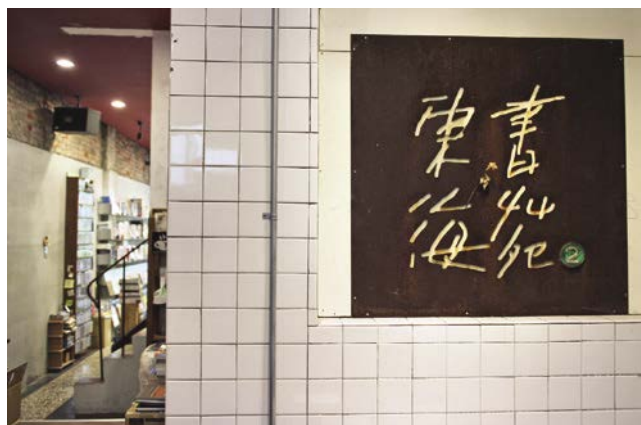 東海
書苑
2